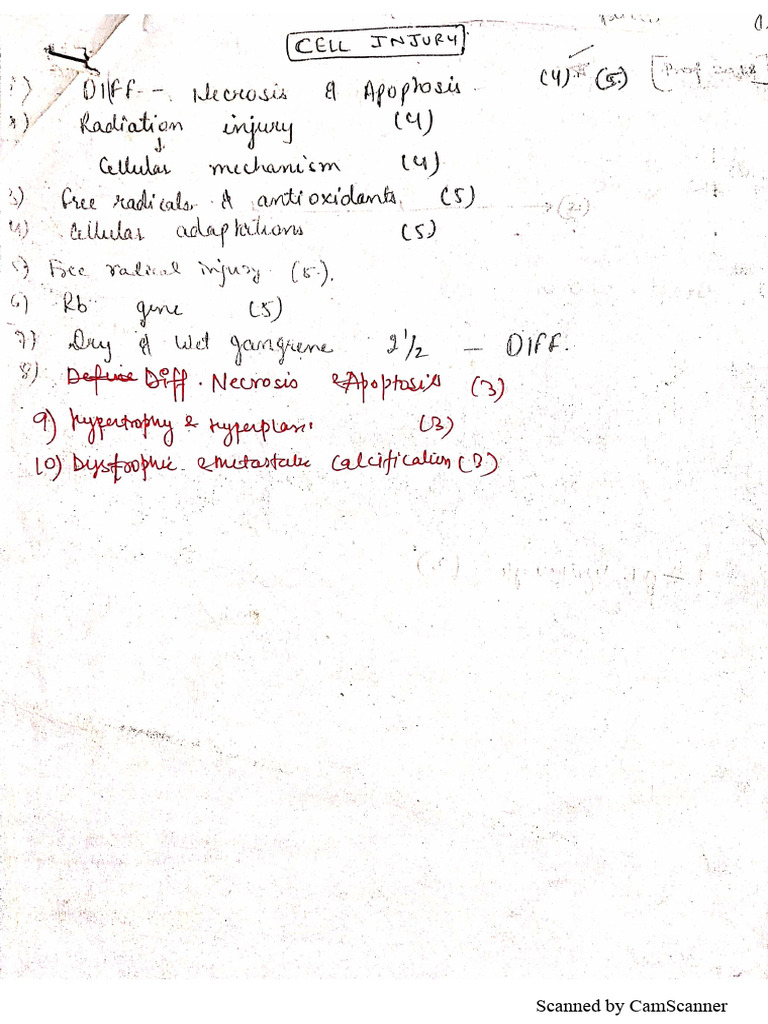 CELL INJURY
1) DIFF - Necrosis & Apoptosis. (4) (5) [Prof 2018]
2) Radiation injury (4)
↓
Cellular mechanism (4)
3) Free radicals & antioxidants (5)
4) Cellular adaptations (5)
5) Free radical injury (5).
6) Rb gene (5)
7) Dry & Wet gangrene 2 1/2 - DIFF.
8) Define Diff. Necrosis & Apoptosis (3)
9) Hypertrophy & Hyperplasi (3)
10) Dystrophic & metastatic calcification (3)
Scanned by CamScanner